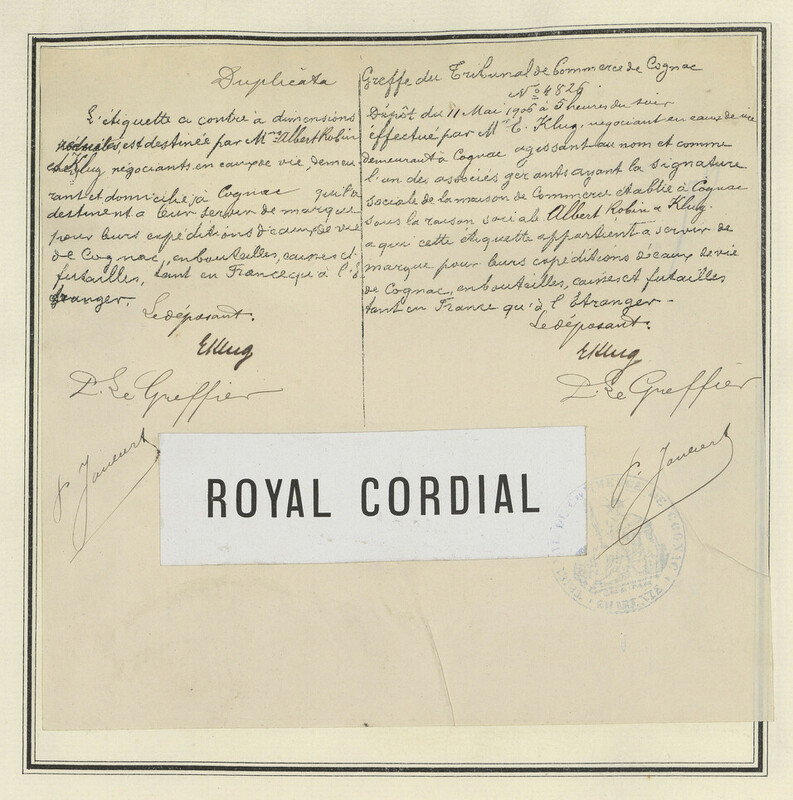 Duplicata
L'étiquette ci contre à dimensions
réduites est destinée par Mrs Albert Robin
et Klug négociants en eaux de vie, demeu
rant et domiciliés à Cognac qu'ils
destinent à leur servir de marque
pour leurs expéditions d'eaux de vie
de Cognac, en bouteilles, caisses et
futailles, tant en France qu'à l'É
tranger.
Le déposant.
EKlug
P. Le Greffier
Greffe du Tribunal de Commerce de Cognac
No 4826.
Dépôt du 11 Mai 1906 à 5 heures du soir
effectué par Mr E. Klug, négociant en eaux de vie
demeurant à Cognac agissant au nom et comme
l'un des associés gérants ayant la signature
sociale de la maison de Commerce établie à Cognac
sous la raison sociale Albert Robin & Klug.
à qui cette étiquette appartient à servir de
marque pour leurs expéditions d'eaux de vie
de Cognac, en bouteilles, caisses et futailles
tant en France qu'à l'Étranger.
Le déposant.
EKlug
P. Le Greffier
ROYAL CORDIAL
TRIBUNAL DE COMMERCE DE COGNAC
CHARENTE